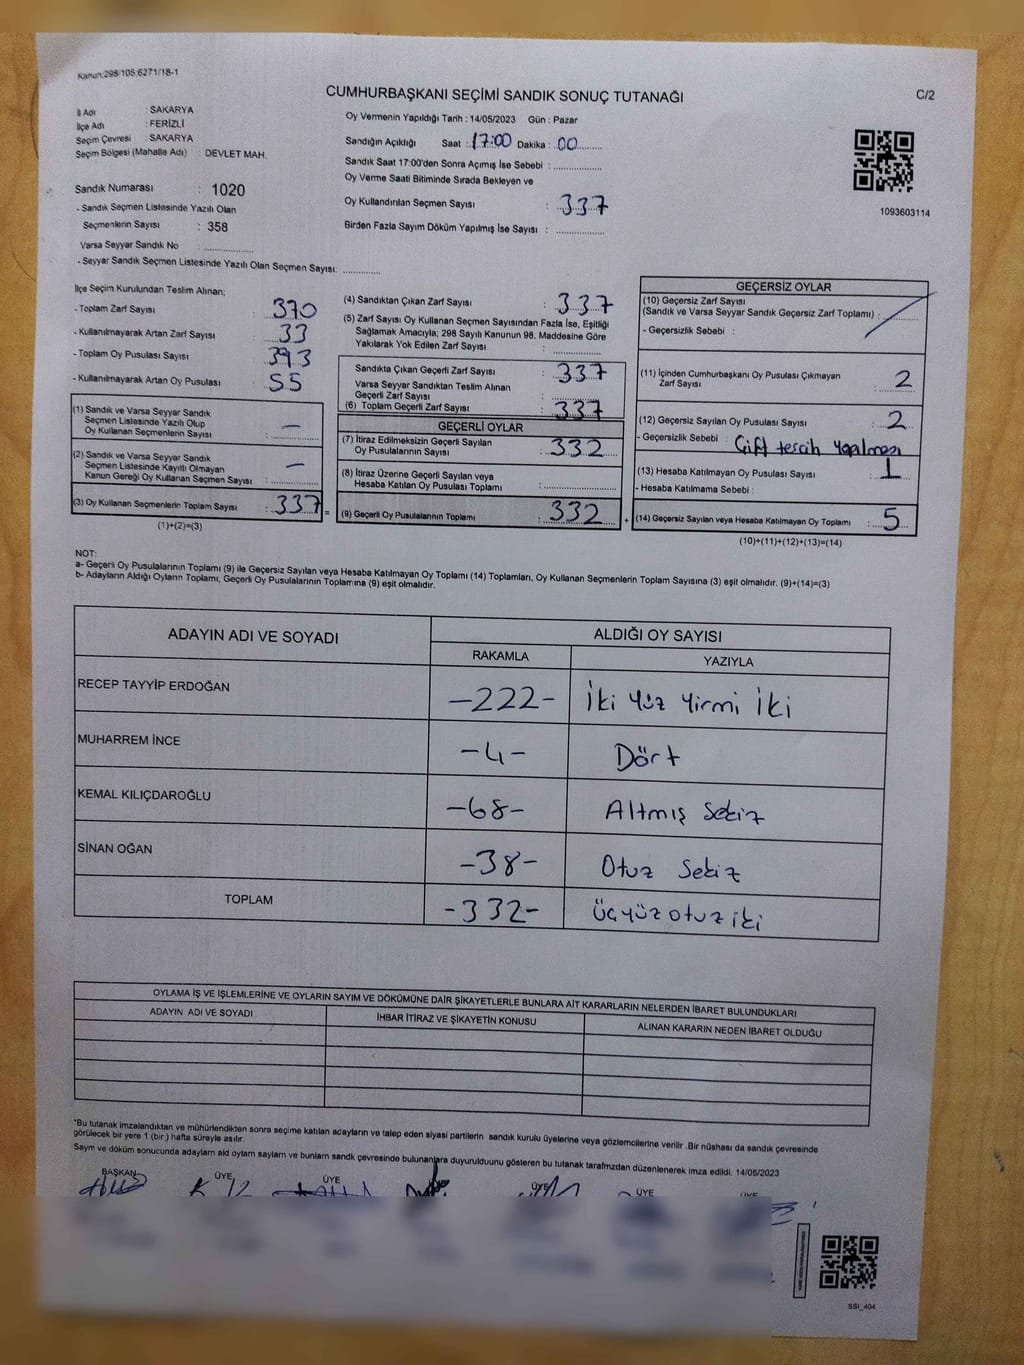 Kanun:298/105:6271/18-1
CUMHURBAŞKANI SEÇİMİ SANDIK SONUÇ TUTANAĞI
C/2
İl Adı : SAKARYA
İlçe Adı : FERİZLİ
Seçim Çevresi : SAKARYA
Seçim Bölgesi (Mahalle Adı) : DEVLET MAH.
Sandık Numarası : 1020
- Sandık Seçmen Listesinde Yazılı Olan
Seçmenlerin Sayısı : 358
Varsa Seyyar Sandık No : ..............
- Seyyar Sandık Seçmen Listesinde Yazılı Olan Seçmen Sayısı: ............
Oy Vermenin Yapıldığı Tarih : 14/05/2023 Gün : Pazar
Sandığın Açıldığı Saat : 17:00 Dakika : 00
Sandık Saat 17:00'den Sonra Açımış İse Sebebi : ..............
Oy Verme Saati Bitiminde Sırada Bekleyen ve
Oy Kullandırılan Seçmen Sayısı : 337
Birden Fazla Sayım Döküm Yapılmış İse Sayısı : ..............
1093603114
İlçe Seçim Kurulundan Teslim Alınan;
- Toplam Zarf Sayısı : 370
- Kullanılmayarak Artan Zarf Sayısı : 33
- Toplam Oy Pusulası Sayısı : 393
- Kullanılmayarak Artan Oy Pusulası : 55
(1) Sandık ve Varsa Seyyar Sandık
Seçmen Listesinde Yazılı Olup
Oy Kullanan Seçmenlerin Sayısı : —
(2) Sandık ve Varsa Seyyar Sandık
Seçmen Listesinde Kayıtlı Olmayan
Kanun Gereği Oy Kullanan Seçmen Sayısı : —
(3) Oy Kullanan Seçmenlerin Toplam Sayısı : 337 =
(1)+(2)=(3)
(4) Sandıktan Çıkan Zarf Sayısı : 337
(5) Zarf Sayısı Oy Kullanan Seçmen Sayısından Fazla İse, Eşitliği
Sağlamak Amacıyla; 298 Sayılı Kanunun 98. Maddesine Göre
Yakılarak Yok Edilen Zarf Sayısı : ..............
Sandıkta Çıkan Geçerli Zarf Sayısı : 337
Varsa Seyyar Sandıktan Teslim Alınan
Geçerli Zarf Sayısı : ..............
(6) Toplam Geçerli Zarf Sayısı : 337
GEÇERLİ OYLAR
(7) İtiraz Edilmeksizin Geçerli Sayılan
Oy Pusulalarının Sayısı : 332
(8) İtiraz Üzerine Geçerli Sayılan veya
Hesaba Katılan Oy Pusulası Toplamı : ..............
(9) Geçerli Oy Pusulalarının Toplamı : 332 +
GEÇERSİZ OYLAR
(10) Geçersiz Zarf Sayısı
(Sandık ve Varsa Seyyar Sandık Geçersiz Zarf Toplamı) : ..............
- Geçersizlik Sebebi :
(11) İçinden Cumhurbaşkanı Oy Pusulası Çıkmayan
Zarf Sayısı : 2
(12) Geçersiz Sayılan Oy Pusulası Sayısı : 2
- Geçersizlik Sebebi : Çift tercih yapılması
(13) Hesaba Katılmayan Oy Pusulası Sayısı : 1
- Hesaba Katılmama Sebebi :
(14) Geçersiz Sayılan veya Hesaba Katılmayan Oy Toplamı : 5
(10)+(11)+(12)+(13)=(14)
NOT:
a- Geçerli Oy Pusulalarının Toplamı (9) ile Geçersiz Sayılan veya Hesaba Katılmayan Oy Toplamı (14) Toplamları, Oy Kullanan Seçmenlerin Toplam Sayısına (3) eşit olmalıdır. (9)+(14)=(3)
b- Adayların Aldığı Oyların Toplamı, Geçerli Oy Pusulalarının Toplamına (9) eşit olmalıdır.
ADAYIN ADI VE SOYADI
ALDIĞI OY SAYISI
RAKAMLA YAZIYLA
RECEP TAYYİP ERDOĞAN -222- İki Yüz Yirmi İki
MUHARREM İNCE -4- Dört
KEMAL KILIÇDAROĞLU -68- Altmış Sekiz
SİNAN OĞAN -38- Otuz Sekiz
TOPLAM -332- Üçyüzotuziki
OYLAMA İŞ VE İŞLEMLERİNE VE OYLARIN SAYIM VE DÖKÜMÜNE DAİR ŞİKAYETLERLE BUNLARA AİT KARARLARIN NELERDEN İBARET BULUNDUKLARI
ADAYIN ADI VE SOYADI İHBAR İTİRAZ VE ŞİKAYETİN KONUSU ALINAN KARARIN NEDEN İBARET OLDUĞU
*Bu tutanak imzalandıktan ve mühürlendikten sonra seçime katılan adayların ve talep eden siyasi partilerin sandık kurulu üyelerine veya gözlemcilerine verilir .Bir nüshası da sandık çevresinde
görülecek bir yere 1 (bir ) hafta süreyle asılır.
Sayım ve döküm sonucunda adayların ald oyların sayların ve bunların sandk çevresinde bulunanlara duyurulduunu gösteren bu tutanak tarafmzdan düzenlenerek imza edildi. 14/05/2023
BAŞKAN ÜYE ÜYE ÜYE ÜYE ÜYE
SSI_404